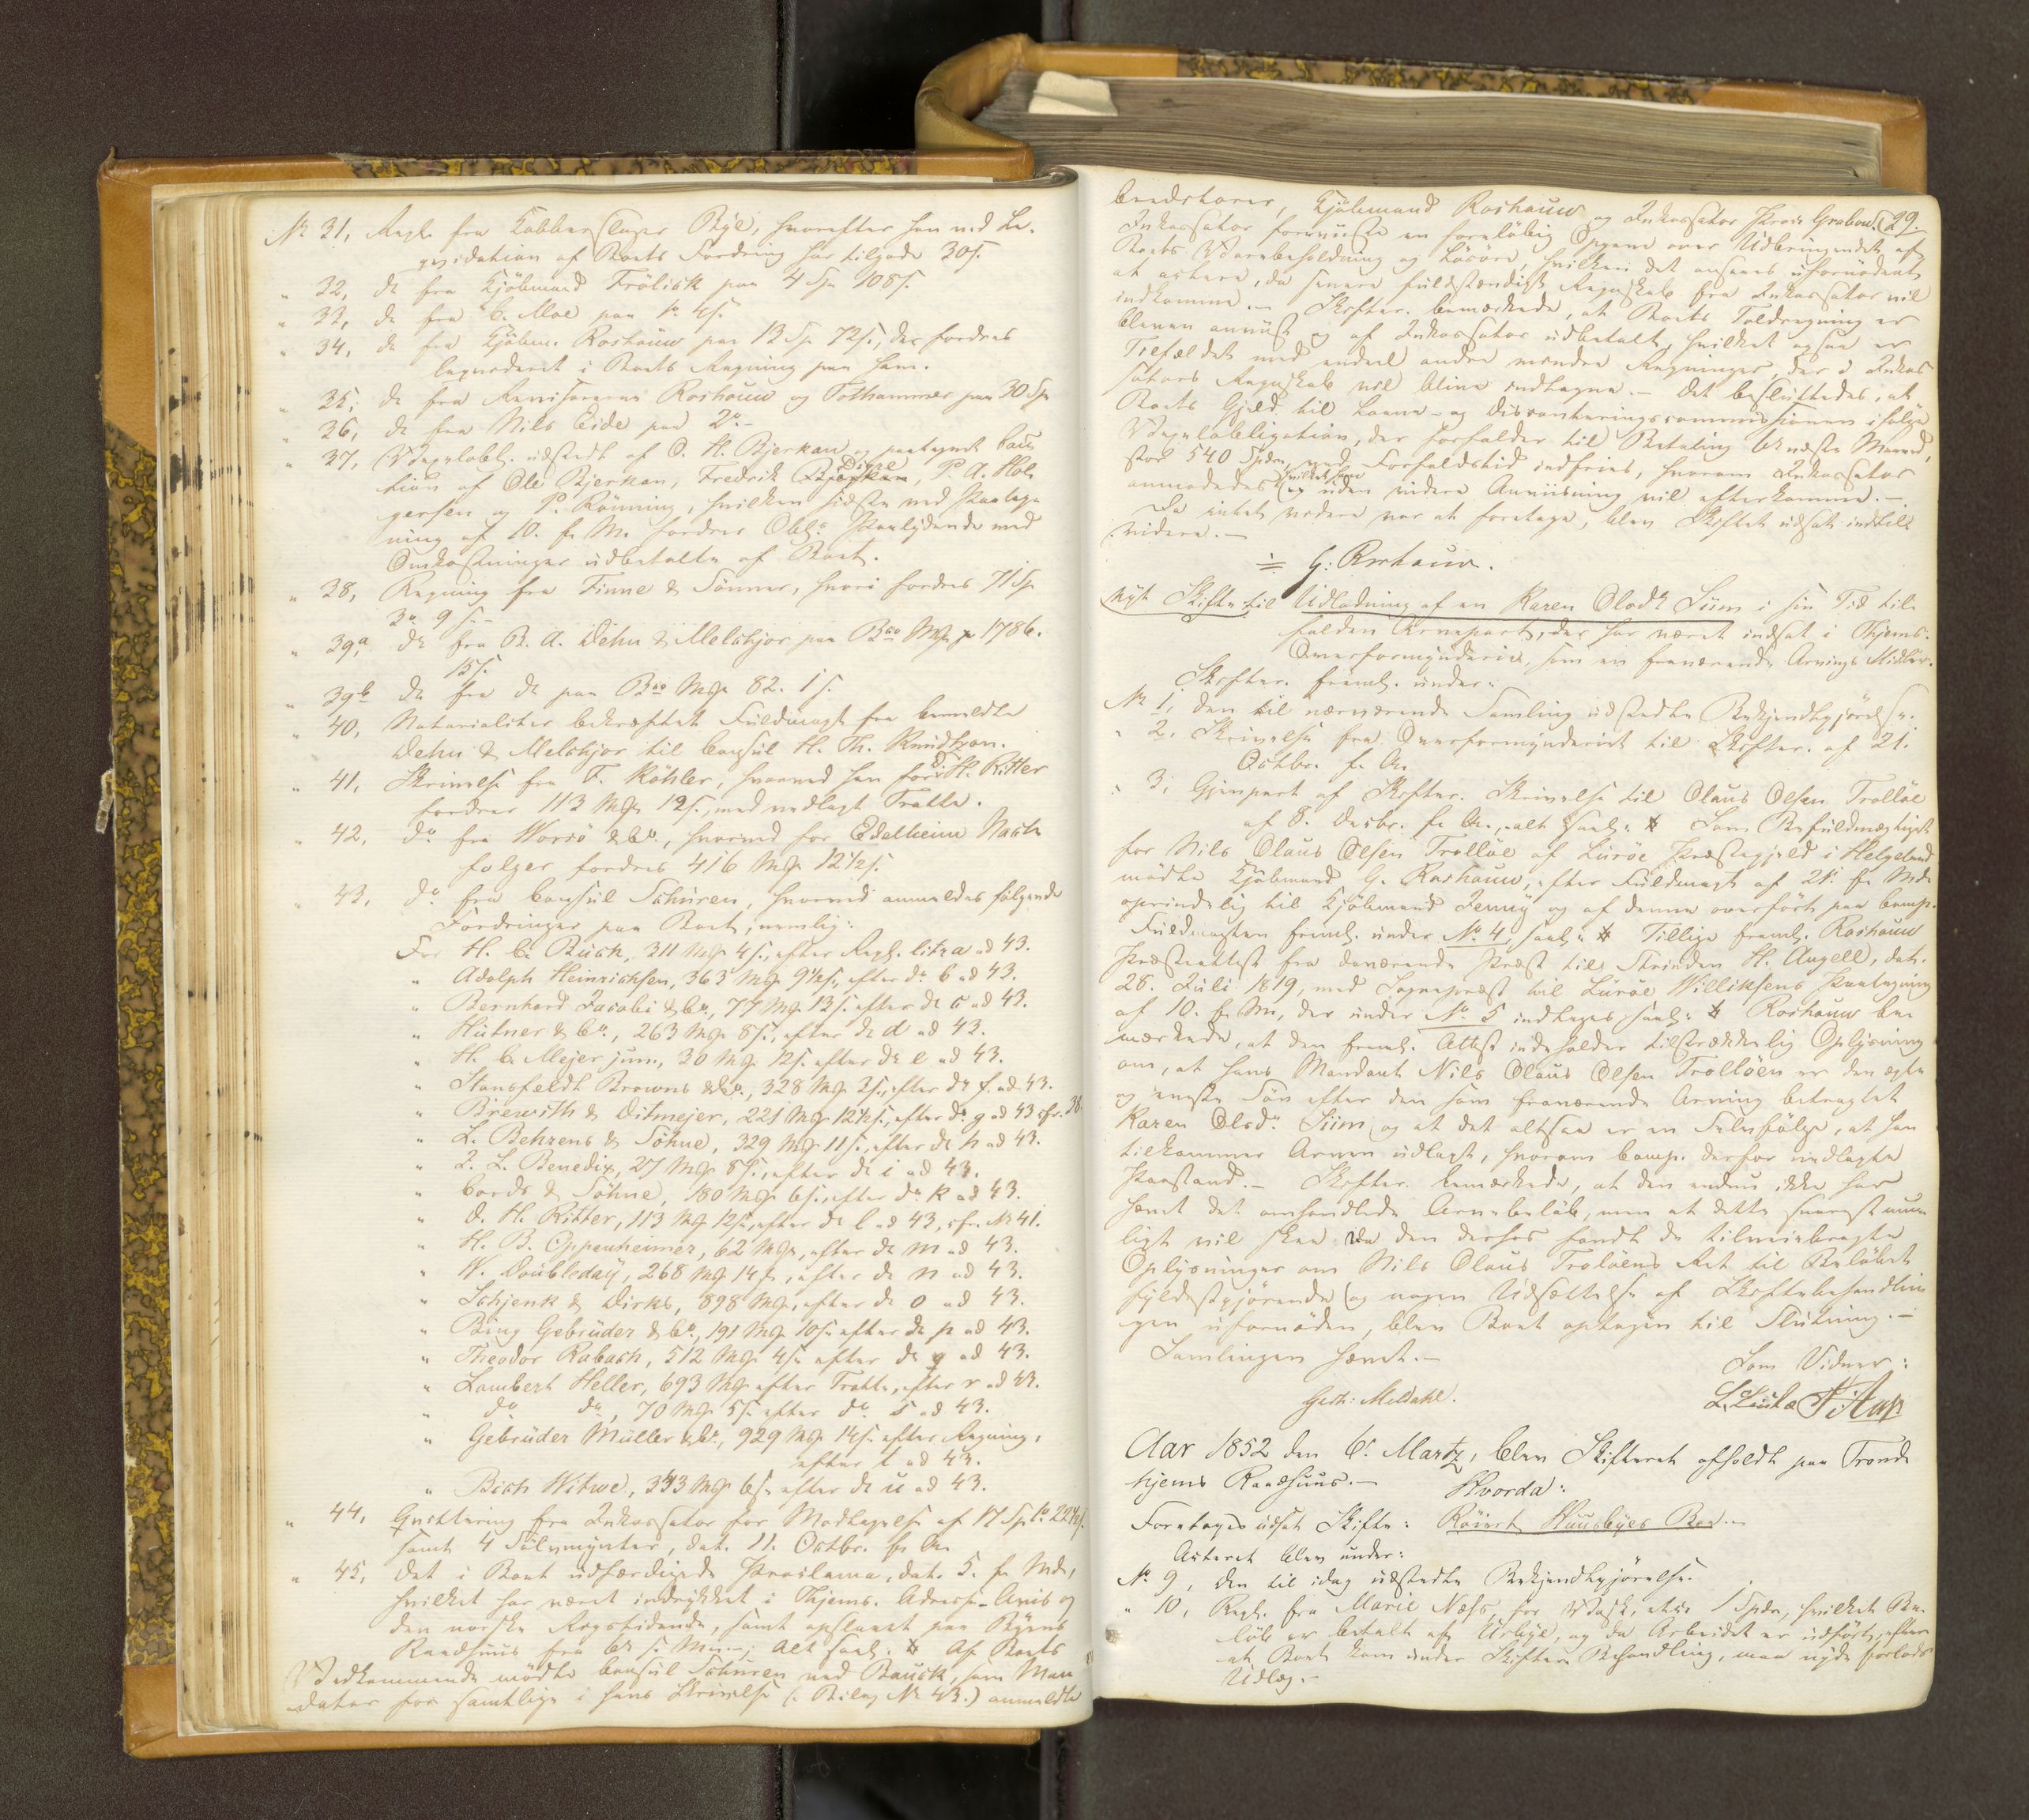 No 31, Regn. fra Kobberslager Bye, hvorefter han ved Li-
qvidation af Boets Fordring har tilgode 30 s.
" 32, do fra Kjöbmand Frölich paa 4 Sp 108 s.
" 33, do fra C. Moe paa 1o 4 s.
" 34, do fra Kjöbm. Roshauw paa 12 Sp 72 s., der fordres
liqvideret i Boets Regning paa ham.
" 35, do fra Revisorerne Roshauw og Tothammer paa 30 Sp
" 36, do fra Nils Eide paa 2o -
" 37, Vexelobl. udstedt af O. H. Bjerkan og paategnet Cau-
tion af Ole Bjerkan, Fredrik Digre, P. A. Hol-
gersen og P. Rönning, hvilken sidste ved Paateg-
ning af 10. f. M. fordrer Obl.s Paalydende med
Omkostninger udbetalte af Boet.
" 38, Regning fra Finne & Sönner, hvori fordres 71 Sp
3o 9 s. -
" 39a, do fra B. A. Dehn & Melchjor paa Bco Mk 1786.
15 s.
" 39b do fra do paa Bco Mk 82. 1 s.
" 40, Notarialiter bekræftet Fuldmagt fra bemeldte
Dehn & Melchjor til Consul H. Th. Knudtzon.
" 41, Skrivelse fra F. Köhler, hvorved han for D. H. Ritter
fordrer 113 Mk 12 s., med vedlagt Tratte.
" 42, do fra Worsö & Co., hvorved for Edelheim Nach-
folger fordres 416 Mk 12½ s.
" 43, do fra Consul Schüren, hvorved anmeldes fölgende
Fordringer paa Boet, nemlig:
For H. C. Buck, 311 Mk 4 s., efter Regn. litra a ad 43.
" Adolph Heinrichsen, 363 Mk 9½ s., efter do b ad 43.
" Bernhard Jacobi & Co., 77 Mk 13 s. efter do c ad 43.
" Hütner & Co., 263 Mk 8 s., efter do d ad 43.
" H. C. Mejer jun., 30 Mk 12 s. efter do e ad 43.
" Stansfeldt Browns & Co., 328 Mk 2 s., efter do f. ad 43.
" Birewith & Ditmejer, 221 Mk 12½ s., efter do g ad 43 cfr. 38.
" L. Behrens & Söhne, 329 Mk 11 s., efter do h ad 43.
" J. L. Benedix, 27 Mk 8 s., efter do i ad 43.
" Cords & Söhne, 180 Mk 6 s., efter do k ad 43.
" D. H. Ritter, 113 Mk 12 s., efter do l ad 43, cfr. No 41.
" H. B. Oppenheimer, 62 Mk, efter do m ad 43.
" W. Doubleday, 268 Mk 14 s., efter do n ad 43.
" Schjenk & Dirks, 898 Mk, efter do o ad 43.
" Bing Gebrüder & Co., 191 Mk 10 s. efter do p ad 43.
" Theodor Rabach, 512 Mk 4 s. efter do q ad 43.
" Lambert Heller, 693 Mk efter Tratte, efter r ad 43.
" do do, 70 Mk 5 s. efter do s ad 43.
" Gebrüder Müller & Co., 929 Mk 14 s. efter Regning,
efter t ad 43.
" Bich Witwe, 343 Mk 6 s. efter do u ad 43.
" 44, Qvittering fra Inkassator for Modtagelse af 17 Sp 1o 22½ s.
samt 4 Sölvmynter, dat. 11. Octbr. f. A.
" 45, Det i Boet udfærdigede Proclama, dat. 5. f. Md.,
hvilket har været indrykket i Thjems. Adresse-Avis og
den norske Rigstidende, samt opslaaet paa Byens
Raadhuus fra 6te s. M.; Alt saal. # Af Boets
Vedkommende mödte Consul Schüren ved Bauck, som Man-
datar for samtlige i hans Skrivelse (: Bilag No 43.) anmeldte
29.
Creditorer, Kjöbmand Roshauw og Inkassator Procr. Grabow.
Inkassator foreviiste en forelöbig Opgave over Udbringendet af
Boets Varebeholdning og Lösöre, hvilken det ansaaes uforнödent
at actere, da senere fuldstændigt Regnskab fra Inkassator vil
indkomme. - Skifter. bemærkede, at Boets Toldregning er
bleven anviist og af Inkassator udbetalt, hvilket ogsaa er
Tilfældet med endeel andre mindre Regninger, der i Inkas-
sators Regnskab vil blive indtagne. - Det besluttedes, at
Boets Gjeld til Laane- og Disconteringscommissionen ifölge
Vexelobligation, der forfalder til Betaling 6te næste Maaned,
stor 540 Spdr., ved Forfaldstid indfries, hvorom Inkassator
anmodedes, hvilket han uden videre Anviisning vil efterkomme. -
Da intet videre var at foretage, blev Skiftet udsat indtil
videre. -
G: Roshauw.
Nyt Skifte til Udlodning af en Karen Olsdr Siim i sin Tid til-
falden Arvepart, der har været indsat i Thjems.
Overformynderie, som en fraværende Arvings Midler.
Skifter. freml. under:
No 1, Den til nærværende Samling udstedte Bekjendtgjörelse.
" 2, Skrivelse fra Overformynderiet til Skifter. af 21.
Octbr. f. A.
" 3, Gjenpart af Skifter. Skrivelse til Olaus Olsen Trolöe
af 8. Decbr. f. A., alt saal. # Som Befuldmægtiget
for Nils Olaus Olsen Trolöe af Luröe Præstegjeld i Helgeland
mödte Kjöbmand G. Roshauw, efter Fuldmagt af 21. f. Md.
oprindelig til Kjöbmand Jenny og af denne overfört paa Comp.
Fuldmagten freml. under No. 4, saal: # Tillige freml. Roshauw
Præsteattest fra daværende Præst til Strinden H. Angell, dat.
28. Juli 1819, med Sognepræst til Luröe Williksens Paategning
af 10. f. M., der under No. 5 indtages saal: # Roshauw be-
mærkede, at den freml. Attest indeholder tilstrækkelig Oplysning
om, at hans Mandant Nils Olaus Olsen Trolöen er den ægte
og eneste Sön efter den som fraværende Arving betragtet
Karen Olsdr. Siim, og at det altsaa er en Selvfölge, at han
tilkommer Arven udlagt, hvorom Comp. derfor nedlagde
Paastand. - Skifter. bemærkede, at den endnu ikke har
hævet det omhandlede Arvebelöb, men at dette snarest muu-
ligt vil skee. Da den derhos fandt de tilveiebragte
Oplysninger om Nils Olaus Trolöens Ret til Belöbet
fyldestgjörende og nogen Udsættelse af Skiftebehandlin-
gen uforнöden, blev Boet optagen til Slutning. -
Samlingen hævet. -
Som Vidner:
Gerh: Meldahl.
Aar 1852 den 6te Martz, blev Skifteret afholdt paa Trond-
hjems Raadhuus. - Hvorda:
Foretoges udsat Skifte: Röiert Huusbyes Bo. -
Acteret blev under:
No. 9, Den til idag udstedte Bekjendtgjörelse.
" 10, Regn. fra Marie Næss, for Vask, stor 1 Spdr., hvilket Be-
löb er betalt af Urbye, og da Arbeidet er udfört, efter
at Boet kom under Skiftets Behandling, maa nyde forlods
Udlæg. -